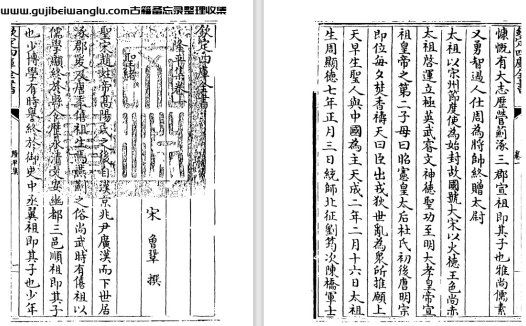 www.gujibeiwanglu.com古籍备忘录整理收集
欽定四庫全書
隆平集卷一
宋 曾鞏 撰
聖緒
聖宋趙姓帝高陽氏之後自漢京兆尹廣漢而下世居
涿郡及唐僖祖生焉燕薊之俗尚武時有僖祖以
儒學顯於其歷永清文安幽都三邑順祖即其子
也少博學有時譽終於御史中丞翼祖即其子也少年
慷慨有大志歷營薊涿三郡宣祖即其子也雅尚儒素
又勇智過人仕周為將帥終贈太尉
太祖以宋州節度使為始封故國號大宋以火德王色尚赤
太祖啓運立極英武睿文神德聖功至明大孝皇帝宣
祖皇帝之第二子母曰昭憲皇太后杜氏初後唐明宗
即位每夕焚香禱天曰臣出戎狄世亂為衆所推願上
天早生聖人與中國為主天成二年二月十六日太祖
生周顯德七年正月三日統師北征劉筠次陳橋軍士